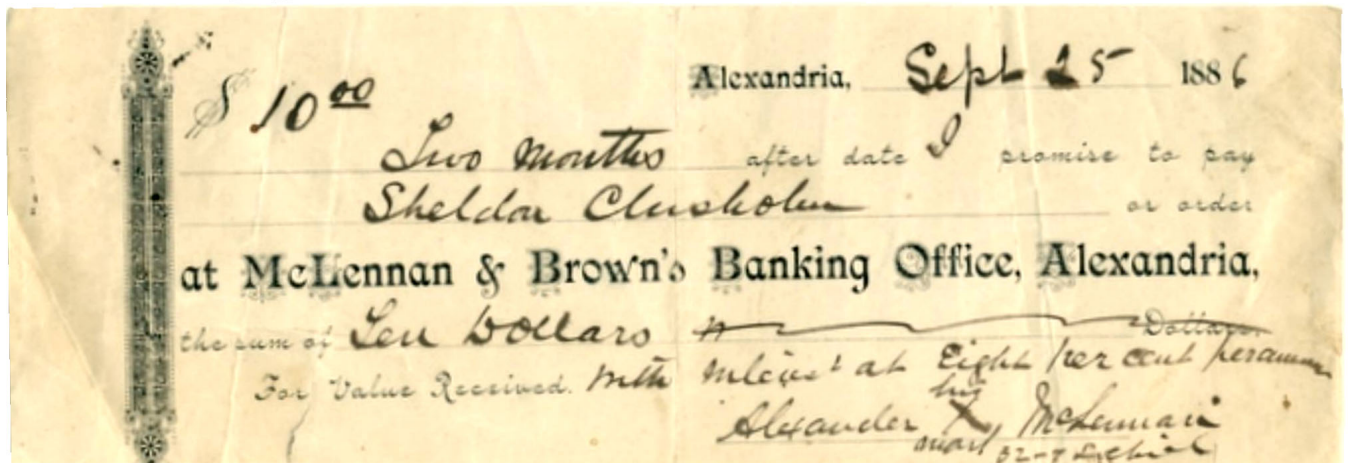 $ 10 00 Alexandria, Sept 25 1886
Two Months after date I promise to pay
Sheldon Chisholm or order
at McLennan & Brown's Banking Office, Alexandria,
the sum of Ten Dollars Dollars
For Value Received. With Interest at Eight per cent per annum
his
Alexander X McLennan
mark